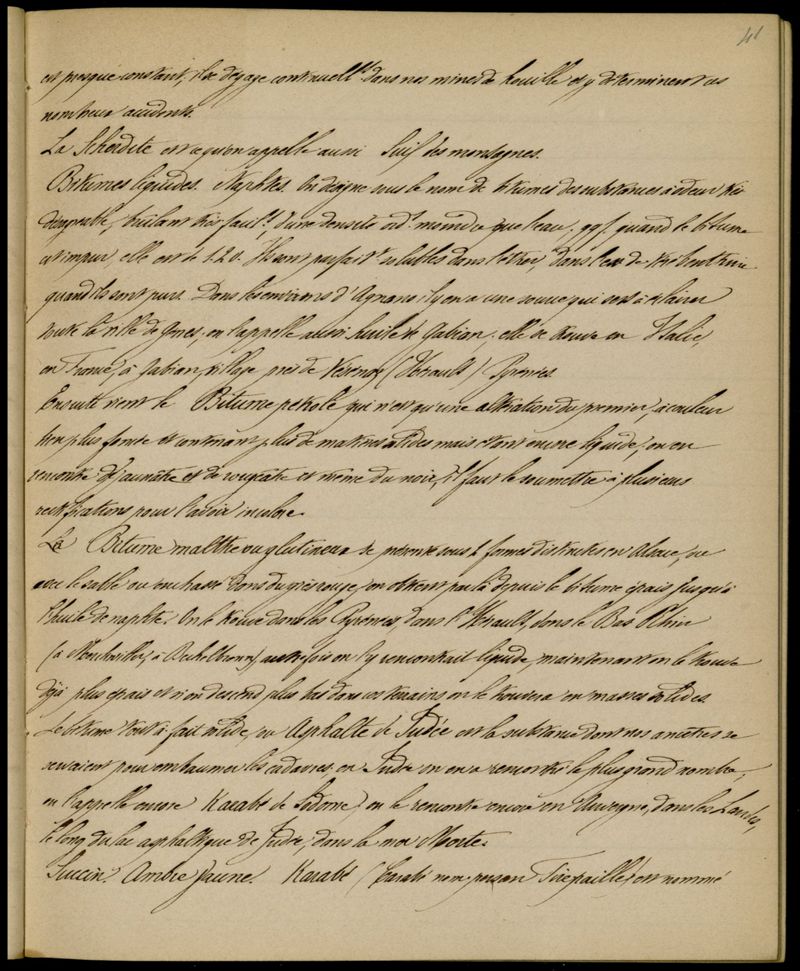 41
est presque constant, il se dégage continuellt dans nos mines de houille et y déterminent ces
nombreux accidents.
La Schérérite est ce qu'on appelle aussi Suif des montagnes.
Bitumes liquides. Naphtes. On désigne sous le nom de bitumes des substances à odeur très
désagréable, brûlant très facilt, d'une densité ordt moindre que l'eau. qqf. quand le bitume
est impur, elle est de 1.20. Ils sont parfaitt solubles dans l'éther, dans l'ess. de térébenthine
quand ils sont purs. Dans les environs d'Agnano il y en a une source qui sert à éclairer
toute la ville de Gênes, on l'appelle aussi huile de Gabian. elle se trouve en Italie,
en France, à Gabian, village près de Pézénas (Hérault) Pyrénées.
Ensuite vient le Bitume pétrole qui n'est qu'une altération du premier, à couleur
bien plus foncée et contenant plus de matières solides mais étant encore liquide, on en
rencontre de jaunâtre et de rougeâtre et même du noir, il faut le soumettre à plusieurs
rectifications pour l'avoir incolore.
Le Bitume malthe ou glutineux se présente sous 2 formes distinctes en Alsace, ou
avec le sable ou enchassé dans du grès rouge, on obtient par là depuis le bitume épais jusqu'à
l'huile de naphte. On le trouve dans les Pyrénées, dans l'Hérault, dans le Bas Rhin
(à à Bechelbronn) autrefois on l'y rencontrait liquide, maintenant on le trouve
déjà plus épais et si on descend plus bas dans ces terrains on le trouvera en masses solides.
Le bitume tout à fait solide, ou Asphalte de Judée est la substance dont nos ancêtres se
servaient pour embaumer les cadavres, en Judée on en a rencontré le plus grand nombre,
on l'appelle encore Karabé de Sodome, on le rencontre encore en Auvergne, dans les Landes,
le long du lac asphaltique de Judée, dans la mer Morte.
Succin. Ambre jaune. Karabé (Carabé nom persan Tirepaille) est nommé